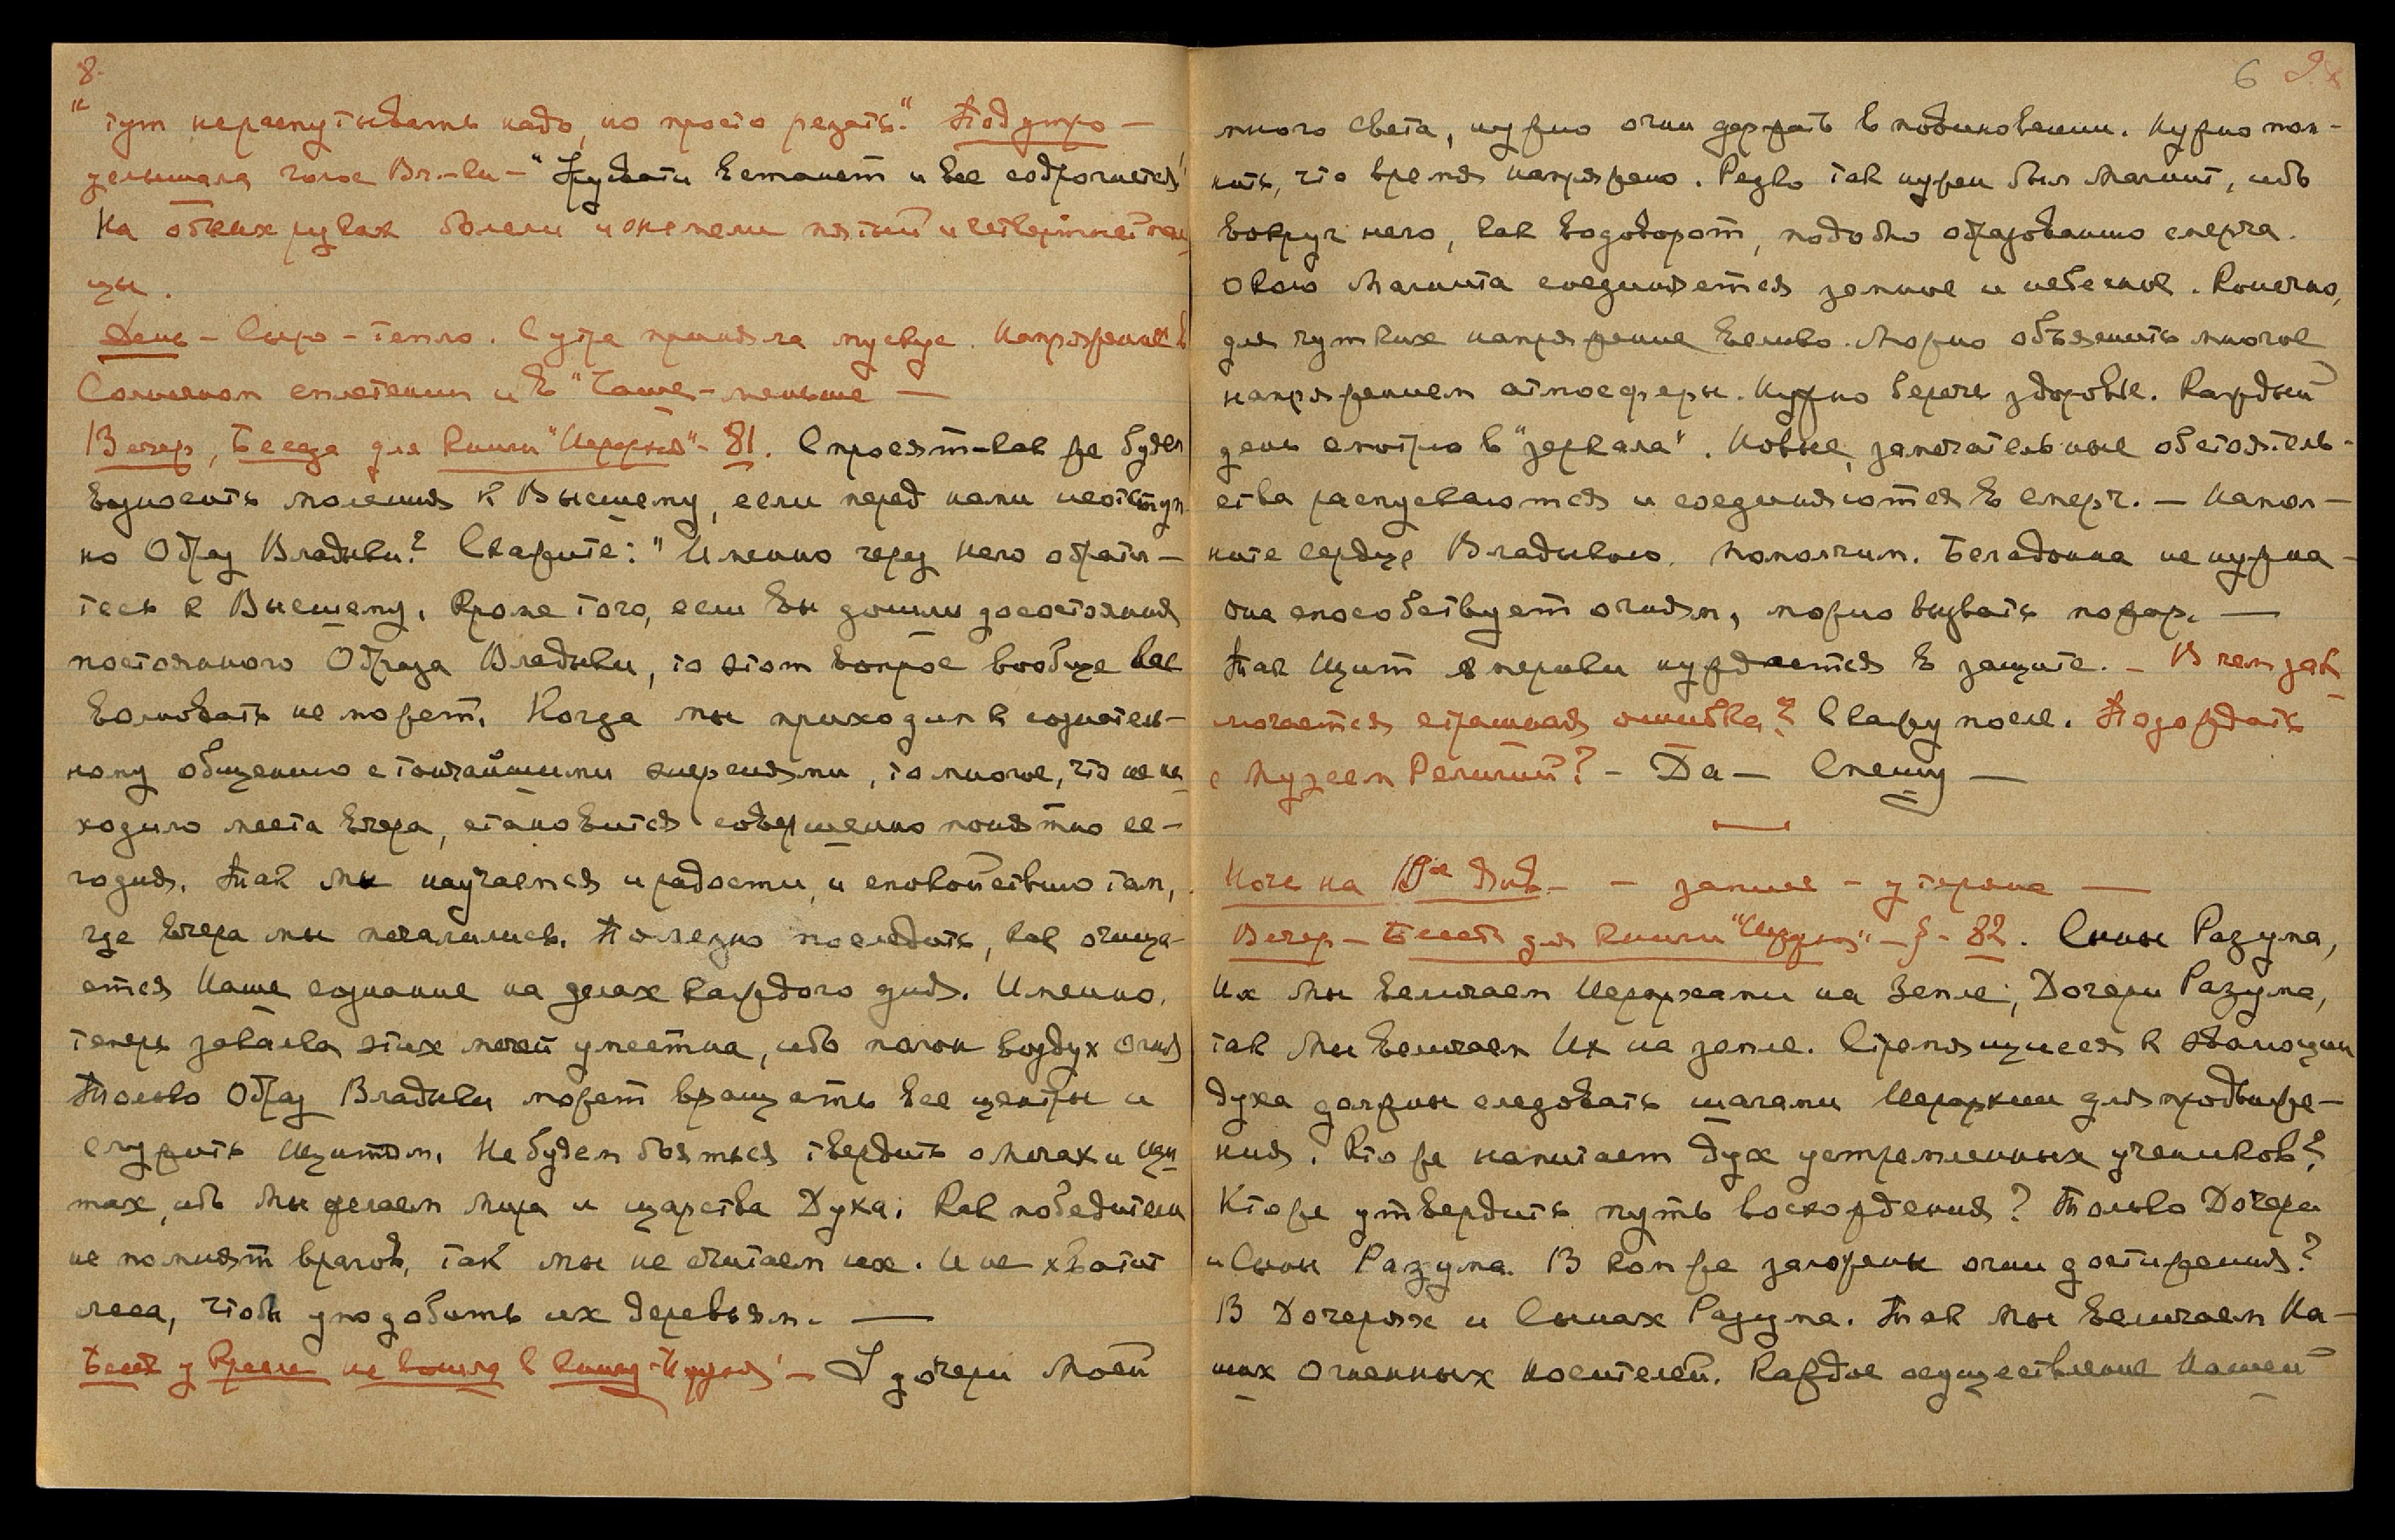 8.
"тут не распутывать надо, но просто резать." Под утро —
услышала голос Вл-ки — "Трувати встанет и все содрогнется!
На обеих руках болели и онемели пятый и четвертый паль
цы.
День - Сыро - тепло. С утра приняла мускус. Напряжение в
Солнечном сплетении и в "Чаше - меньше —
Вечер, Беседа для книги "Иерархия" - 81. Спросят - как же будем
возносить моления к Высшему, если перед нами неотступ-
но Образ Владыки? Скажите: "Именно через Него обрати-
тесь к Высшему. Кроме того, если вы дошли до состояния
постоянного Образа Владыки, то этот вопрос вообще вас
волновать не может. Когда мы приходим к сознатель-
ному общению с тончайшими энергиями, то многое, что не на
ходило места вчера, становится совершенно понятно се-
годня. Так мы научаемся и радости, и спокойствию там,
где вчера мы печалились. Полезно последить, как очища-
ется Наше сознание на делах каждого дня. Именно,
теперь закалка этих мечей уместна, ибо полон воздух огня
Только Образ Владыки может вращать все центры и
служить Щитом. Не будем бояться твердить о мечах и щи
тах, ибо мы желаем мира и царства Духа. Как победители
не помнят врагов, так мы не считаем их. И не хватит
леса, чтобы уподобить их деревьям. —
Беседа у Кресла не вошла в книгу "Иерархия" — У дочери Моей
6 9.
много света, нужно огни держать в повиновении. Нужно пом-
нить, что время напряжено. Редко так нужен был Магнит, ибо
вокруг него, как водоворот, подобно образованию смерча.
Около Магнита соединяется земное и небесное. Конечно,
для чутких напряжение велико. Можно объяснить многое
напряжением атмосферы. Нужно беречь здоровье. Каждый
день смотрю в "зеркала". Новые, замечательные обстоятель-
ства распускаются и соединяются в смерч. — Напол-
ните сердце Владыкою. Помолчим. Беладонна не нужна -
она способствует огням, можно вызвать пожар. —
Так Щит Америки нуждается в защите. — В чем зак
лючается страшная ошибка? Скажу после. Подождать
с Музеем Религий? - Да — Спешу —
Ночь на 10ое Янв. — — запись - утеряна —
Вечер - Беседа для книги "Иерархия" - § - 82. Сыны Разума,
Их Мы величаем Иерархами на Земле; Дочери Разума,
так Мы величаем Их на земле. Стремящиеся к эволюции
духа должны следовать шагами Иерархии для продвиже-
ния. Кто же напитает дух устремленных учеников?
Кто же утвердить путь восхождения? Только Дочери
и Сыны Разума. В ком же заложены огни достижения?
В Дочерях и Сынах Разума. Так Мы величаем На-
ших Огненных носителей. Каждое осуществление Нашей